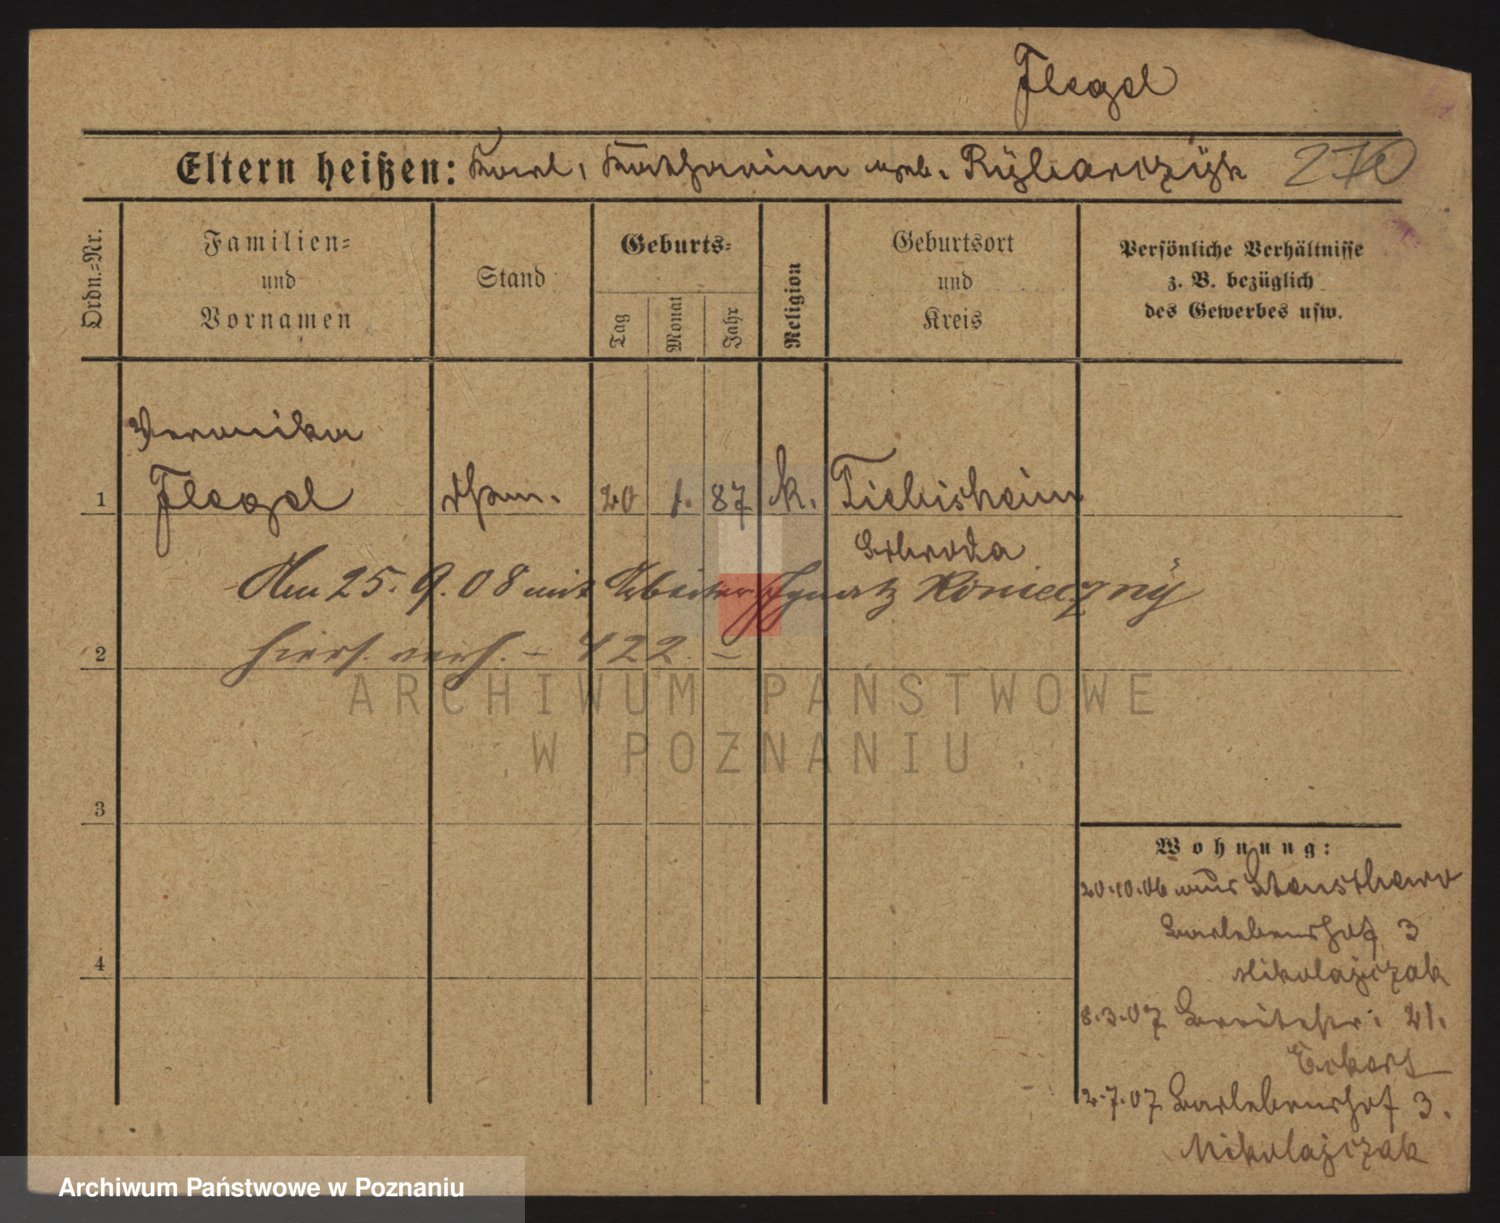 Flegel
Eltern heißen: Karl, Katharina geb. Rÿbarczÿk 270
Ordn.-Nr.
Familien-
und
Vornamen
Stand
Geburts-
Tag
Monat
Jahr
Religion
Geburtsort
und
Kreis
Persönliche Verhältnisse
z. B. bezüglich
des Gewerbes usw.
Veronika
1 Flegel 20 1. 87 k. Tiebisheim
Schroda
Am 25. 9. 08 mit Arbeiter Ignatz Konieczny
2 hiers. verh. – 422 –
3
4
Wohnung:
20.10.06 aus
Barlebenshof 3
Mikolajczak
8.3.07 Breitestr: 21.
Eckert
2.7.07 Barlebenshof 3.
Mikolajczak
ARCHIWUM PAŃSTWOWE
W POZNANIU
Archiwum Państwowe w Poznaniu